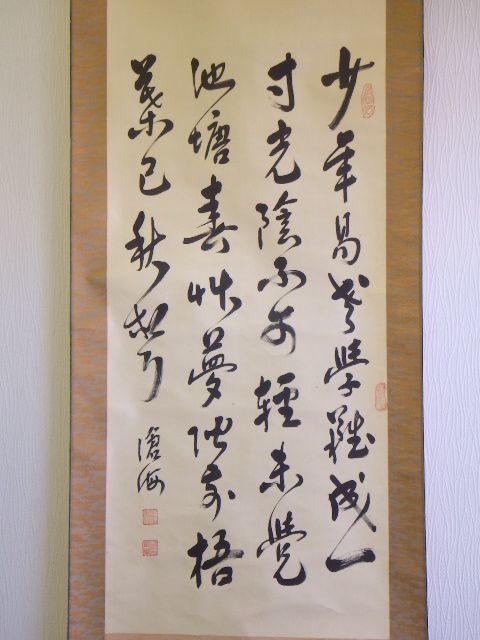 少年易老學難成一
寸光陰不可輕未覺
池塘春艸夢階前梧
葉已秋聲
滄海